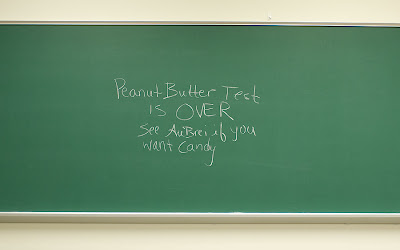 Peanut Butter Test
IS OVER
See AuBrei if you
want Candy